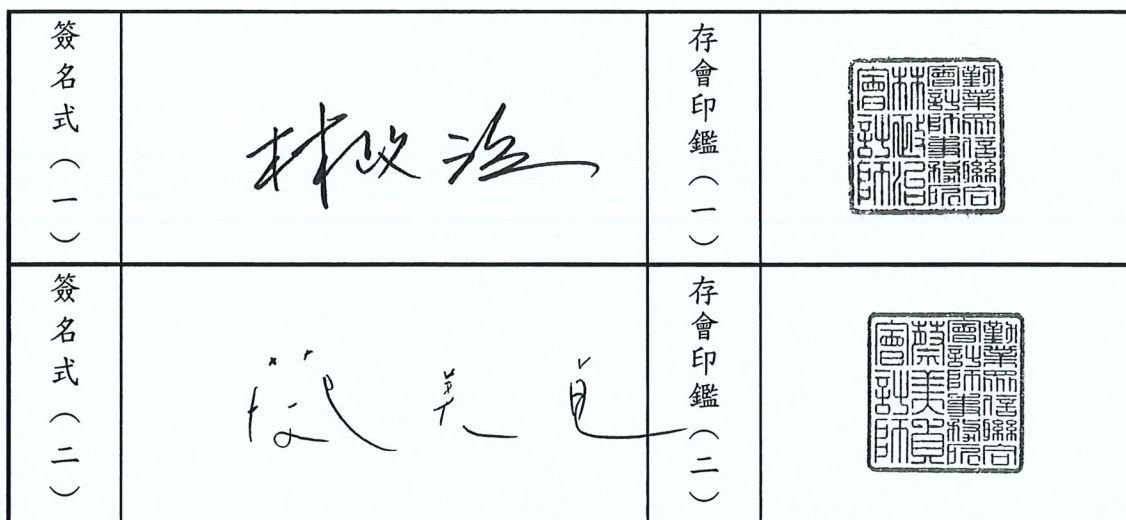 簽名式(一)
林政治
存會印鑑(一)
勤業眾信聯合
會計師事務所
林政治
會計師
簽名式(二)
蔡美貞
存會印鑑(二)
勤業眾信聯合
會計師事務所
蔡美貞
會計師